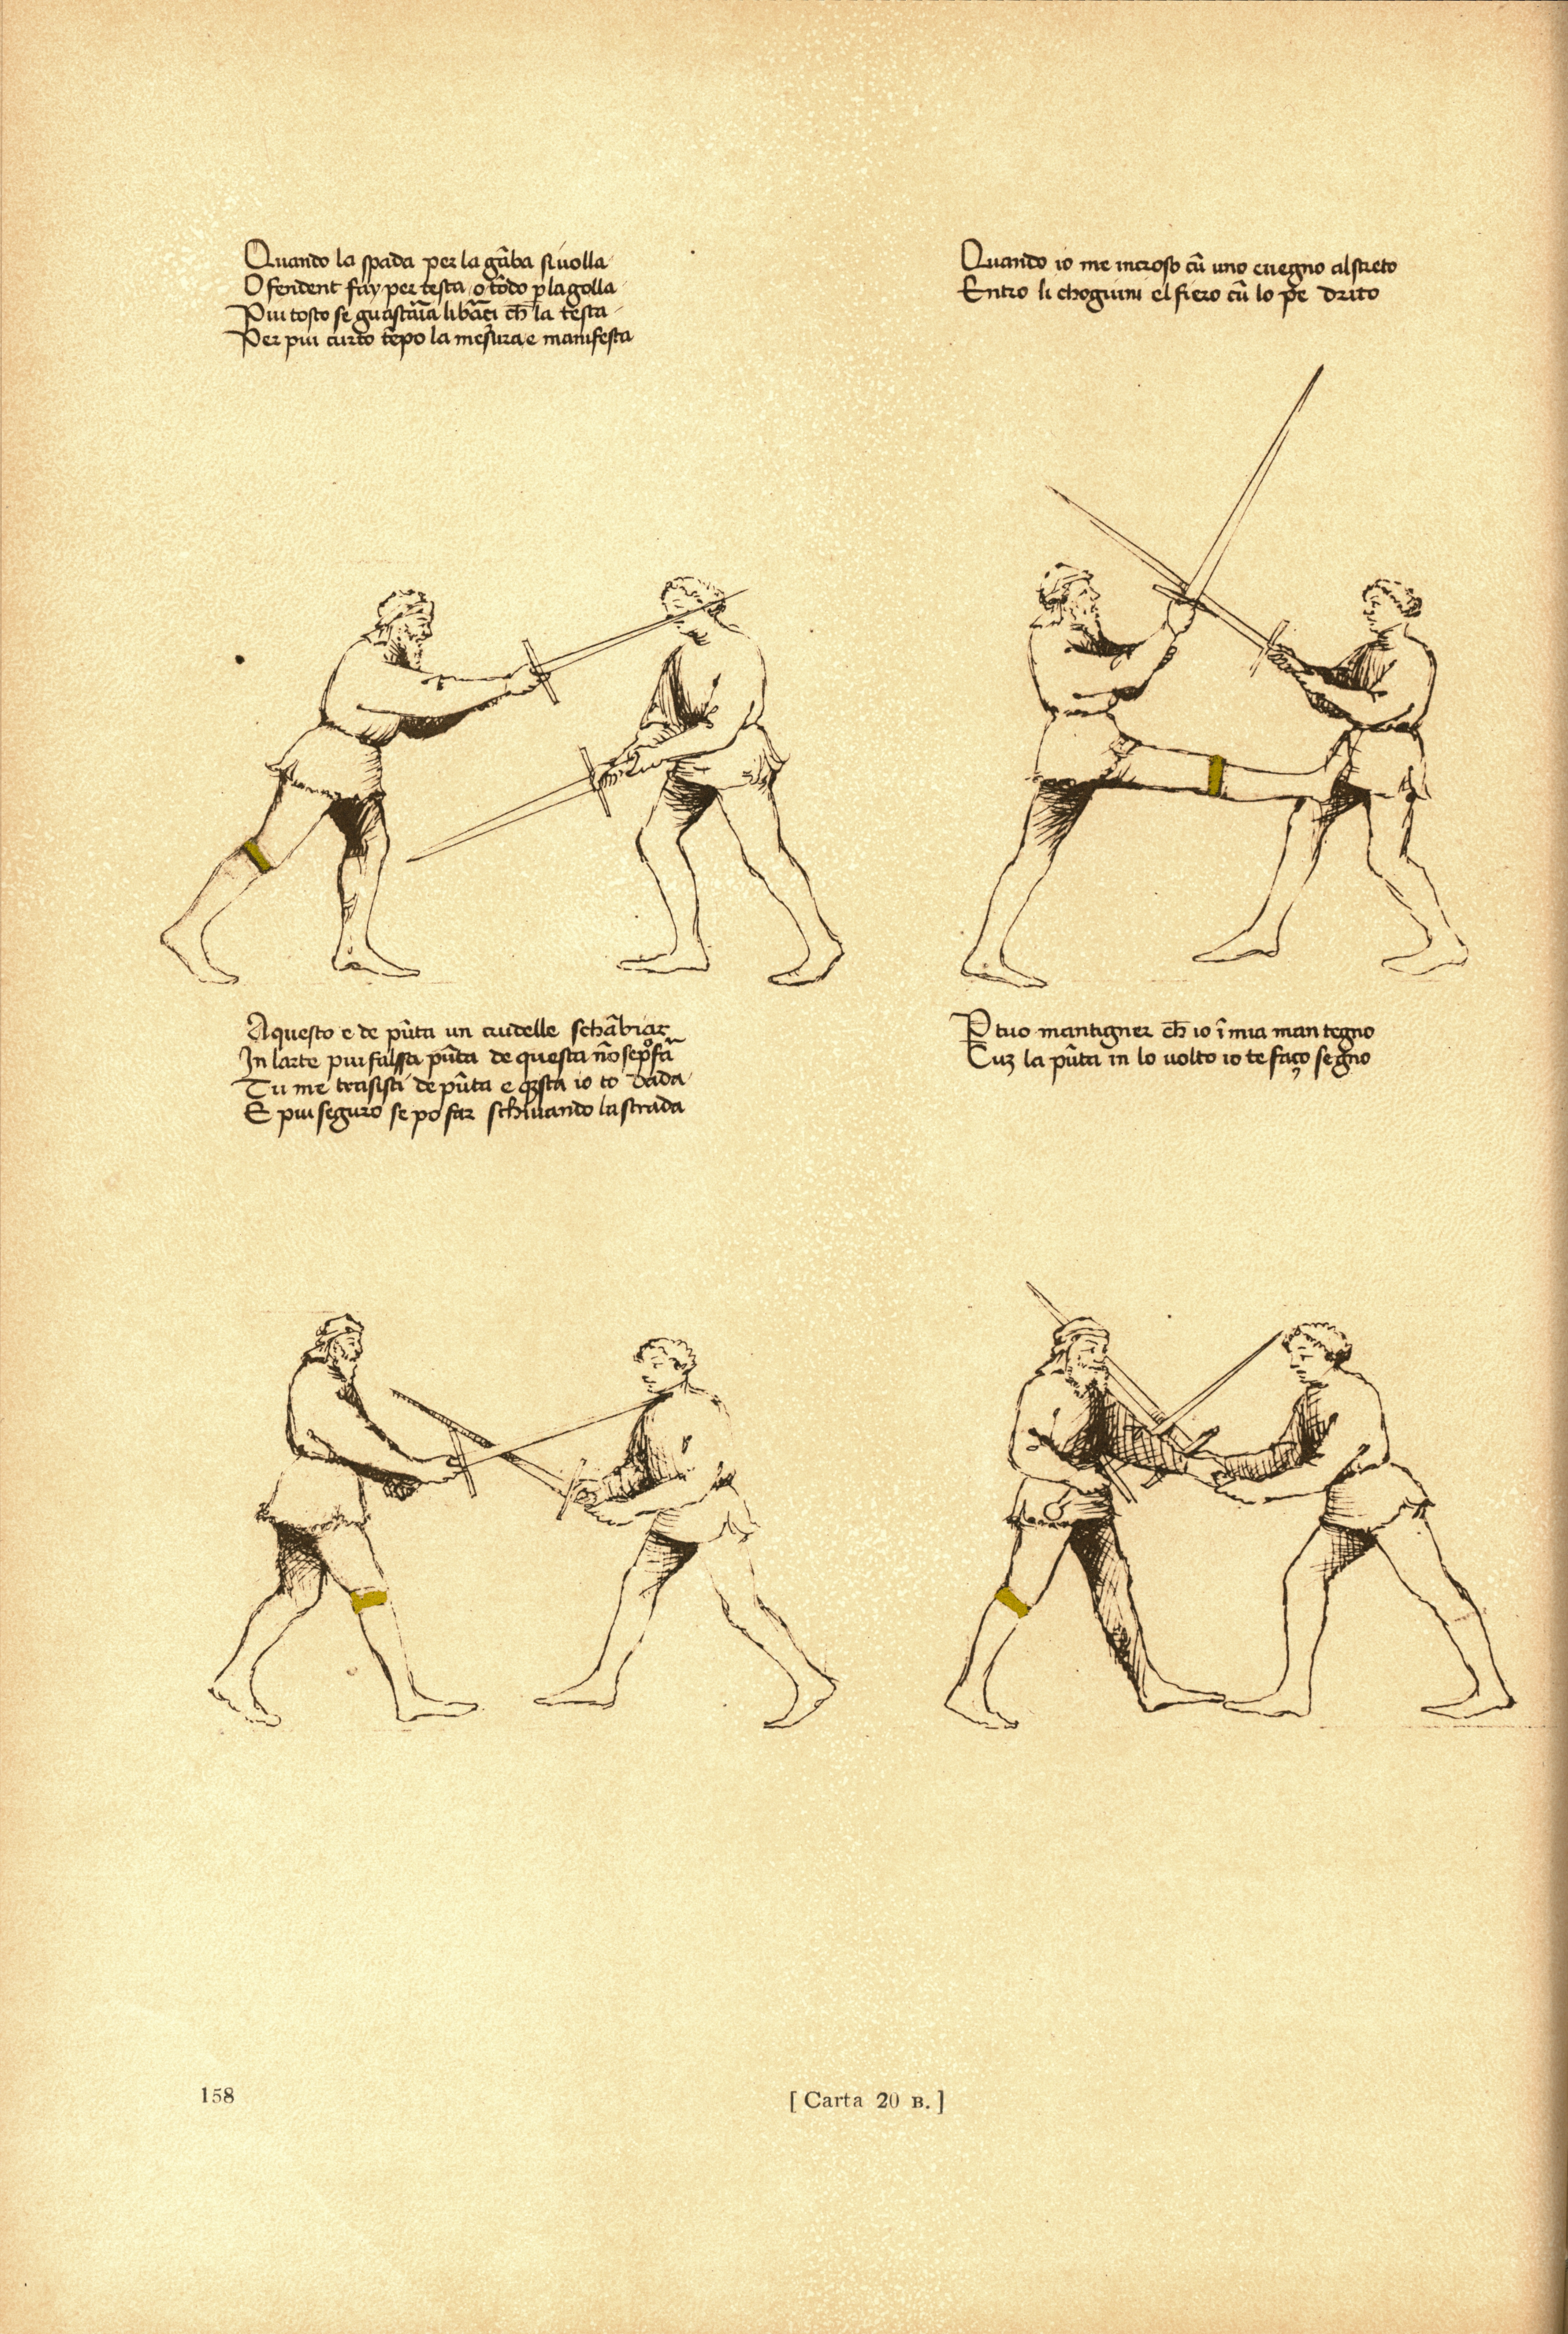 Quando la spada per la gāba si uolla
Ofendent fay per testa o tōdo p la golla
Piu tosto se guastaīa li bāci ch̄ la testa
Per piu curto tēpo la mesura e manifesta
Quando io me incroso cū uno e uegno al streto
Entro li choglium el fiero cū lo pe drito
Aquesto e de pūta un crudelle schābiar
In larte piu falssa pūta de questa nō se po fā
Tu me trasisti de pūta e q̄sta io to dada
E piu seguro se po far schiuando la strada
P tuo mantigner ch̄ io ī mia man tegno
Cuz la pūta in lo uolto io te faço segno
158
[ Carta 20 B. ]